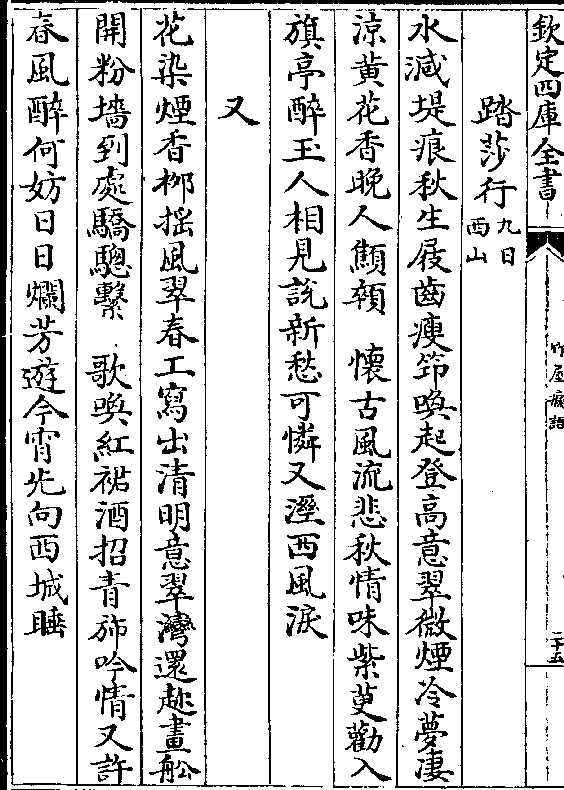 欽定四庫全書
竹屋癡語
二十五
踏莎行九日西山
水減堤痕秋生屐齒瘦筇喚起登高意翠微煙冷夢凄
涼黄花香晚人顦顇　懷古風流悲秋情味紫萸勸入
旗亭醉玉人相見說新愁可憐又溼西風淚
又
花染煙香栁揺風翠春工寫出清明意翠灣還趂畫船
開粉墻到處驕驄繫　歌喚紅裙酒招青斾吟情又許
春風醉何妨日日爛芳遊今宵先向西城睡